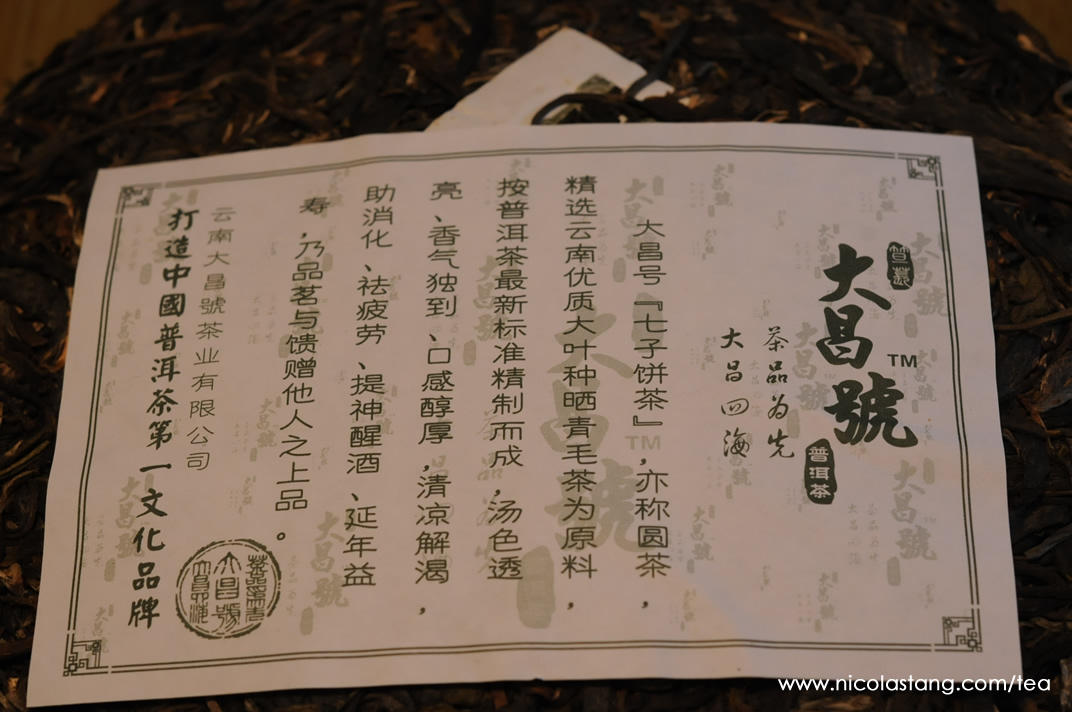 大昌號™
普洱茶
茶品为先
大昌四海
大昌号『七子饼茶』，亦称圆茶，
精选云南优质大叶种晒青毛茶为原料，
按普洱茶最新标准精制而成，汤色透
亮、香气独到、口感醇厚，清凉解渴，
助消化、祛疲劳、提神醒酒、延年益
寿，乃品茗与馈赠他人之上品。
云南大昌號茶业有限公司
打造中國普洱茶第一文化品牌
大昌號
www.nicolastang.com/tea